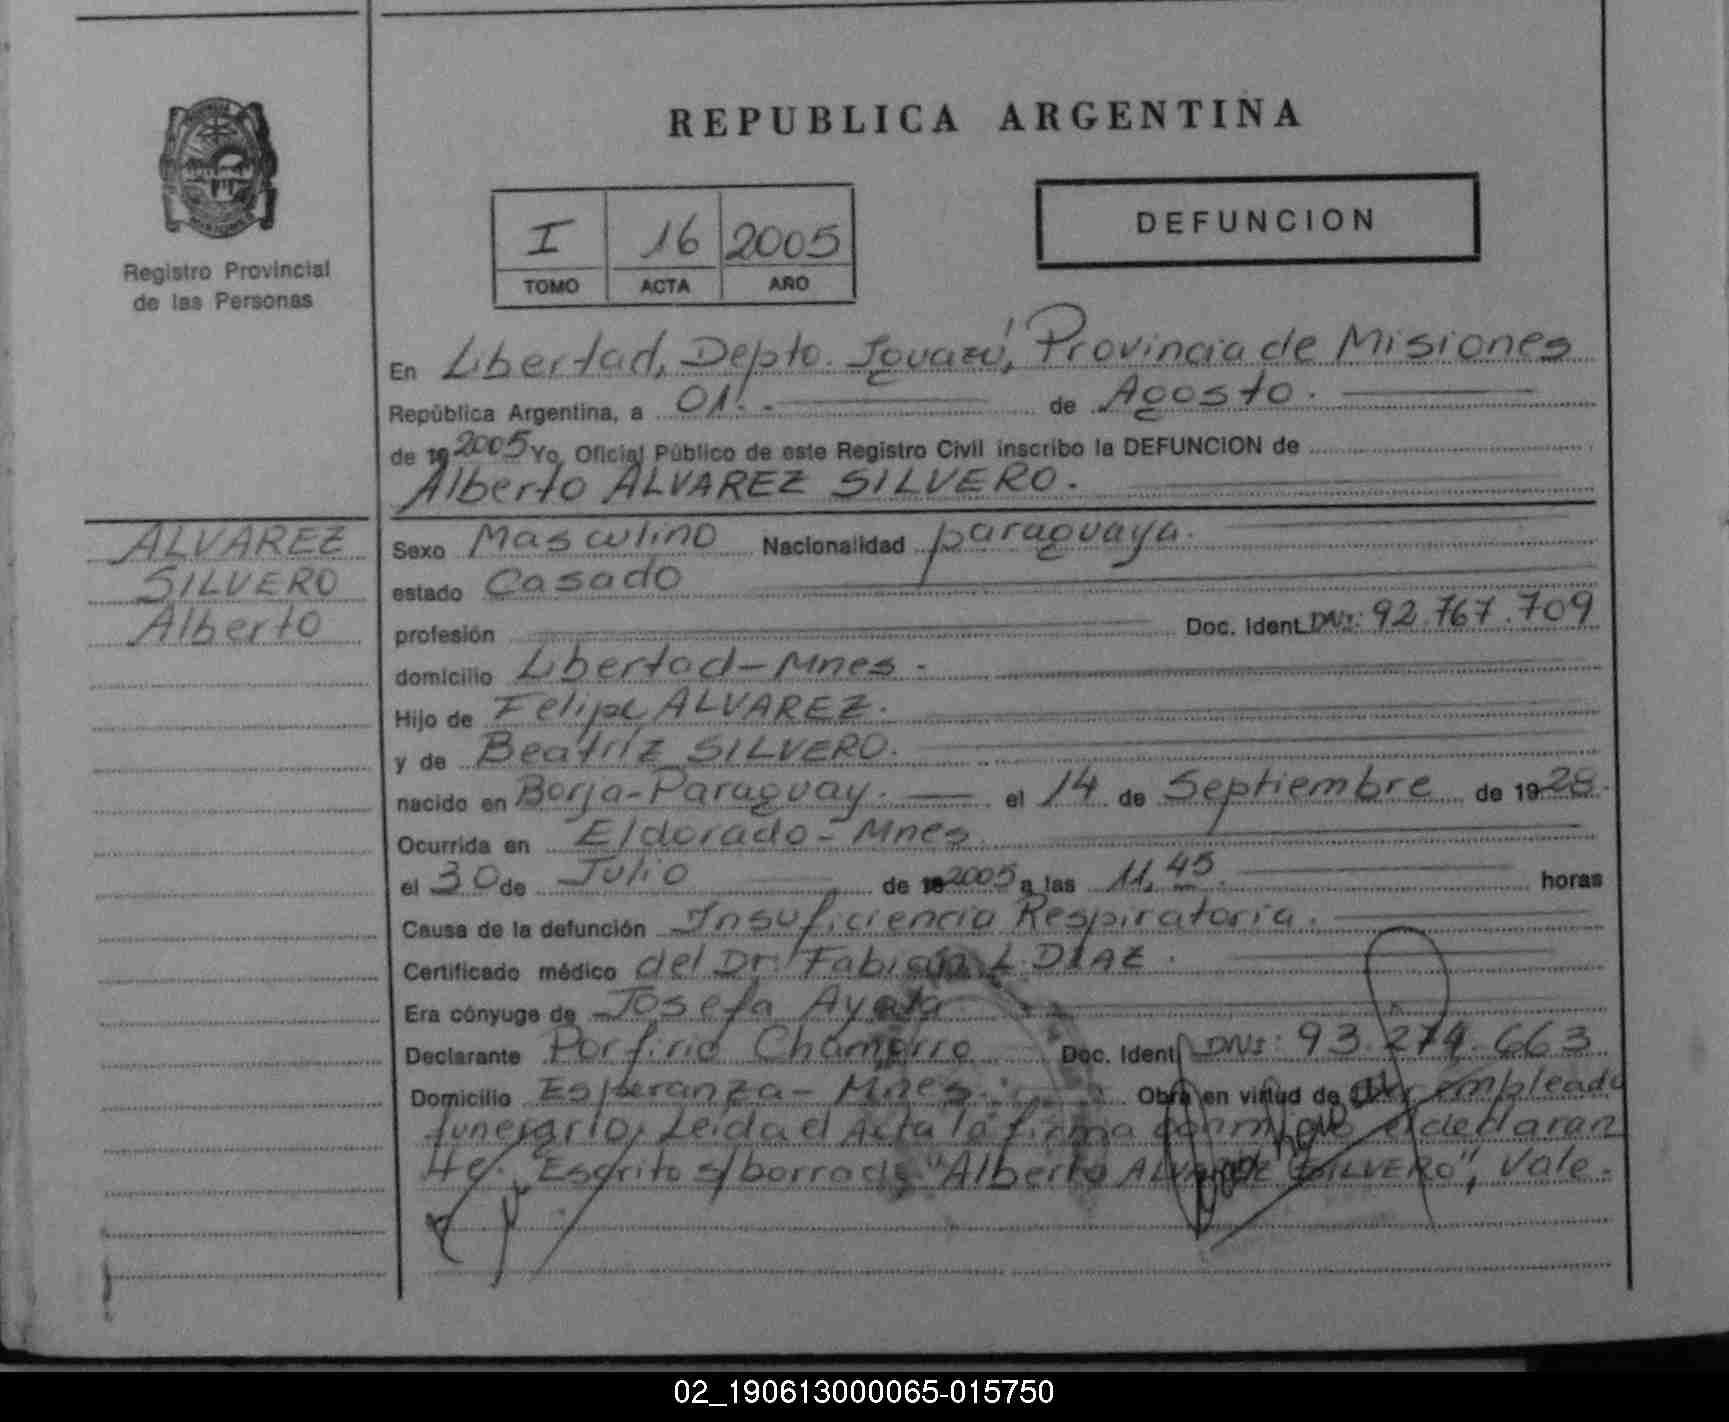 REPUBLICA ARGENTINA
Registro Provincial
de las Personas
I 16 2005
TOMO ACTA AÑO
DEFUNCION
En Libertad, Depto. Iguazú, Provincia de Misiones
República Argentina, a 01.- de Agosto.
de 19 2005 Yo, Oficial Público de este Registro Civil inscribo la DEFUNCION de
Alberto ALVAREZ SILVERO.
ALVAREZ
SILVERO
Alberto
Sexo Masculino Nacionalidad paraguaya.
estado Casado
profesión Doc. Ident. DNI: 92.767.709
domicilio Libertad-Mnes.
Hijo de Felipe ALVAREZ.
y de Beatriz SILVERO.
nacido en Borja-Paraguay. el 14 de Septiembre de 1928.
Ocurrida en Eldorado-Mnes.
el 30 de Julio de 19 2005 a las 11,45. horas
Causa de la defunción Insuficiencia Respiratoria.
Certificado médico del Dr. Fabian L. DIAZ.
Era cónyuge de Josefa Ayala
Declarante Porfirio Chamorro Doc. Ident. DNI: 93.274.663
Domicilio Esperanza-Mnes. Obra en virtud de ser empleado
funerario, Leida el Acta la firma conmigo el declaran
te. Escrito s/borrado "Alberto ALVAREZ SILVERO", Vale.
02_190613000065-015750